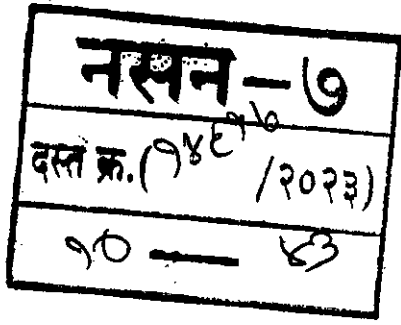 नसन - ७
दस्त क्र. (१४८१७ /२०२३)
१० — ४३